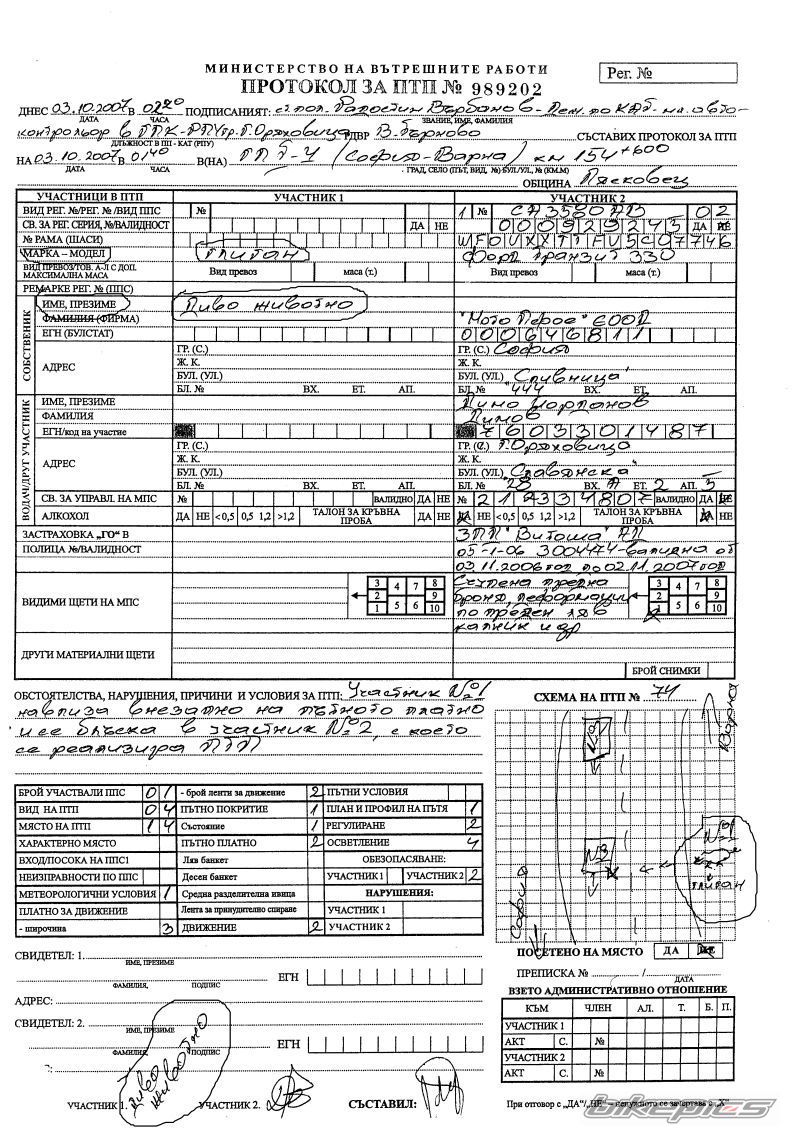 МИНИСТЕРСТВО НА ВЪТРЕШНИТЕ РАБОТИ
ПРОТОКОЛ ЗА ПТП № 989202
Рег. №
ДНЕС 03.10.2007 В 0220 ПОДПИСАНИЯТ:
ДАТА ЧАСА ЗВАНИЕ, ИМЕ, ФАМИЛИЯ
СЪСТАВИХ ПРОТОКОЛ ЗА ПТП
ДЛЪЖНОСТ В ПП - КАТ (РПУ)
НА 03.10.2007 В 0140 В(НА) (София-Варна) км 154+600
ДАТА ЧАСА ГРАД, СЕЛО (ПЪТ, ВИД, №) БУЛ./УЛ., № (КМ.М)
ОБЩИНА Лясковец
УЧАСТНИЦИ В ПТП УЧАСТНИК 1 УЧАСТНИК 2
ВИД РЕГ. №/РЕГ. №/ВИД ППС № 1 № 02
СВ. ЗА РЕГ. СЕРИЯ, №/ВАЛИДНОСТ ДА НЕ ДА НЕ
№ РАМА (ШАСИ)
МАРКА – МОДЕЛ Глиган Форд Транзит 330
ВИД ПРЕВОЗ/ТОВ. А-Л С ДОП. МАКСИМАЛНА МАСА Вид превоз маса (т.) Вид превоз маса (т.)
РЕМАРКЕ РЕГ. № (ППС)
СОБСТВЕНИК
ИМЕ, ПРЕЗИМЕ Диво животно
ФАМИЛИЯ (ФИРМА) "Мото Пфое" ЕООД
ЕГН (БУЛСТАТ) 000646811
АДРЕС
ГР. (С.) ГР. (С.) София
Ж. К. Ж. К.
БУЛ. (УЛ.) БУЛ. (УЛ.) "Сливница"
БЛ. № ВХ. ЕТ. АП. БЛ. № 444 ВХ. ЕТ. АП.
ВОДАЧ/ДРУГ УЧАСТНИК
ИМЕ, ПРЕЗИМЕ Димо Йорданов
ФАМИЛИЯ Димов
ЕГН/код на участие 7603301487
АДРЕС
ГР. (С.) ГР. (С.) Г.Оряховица
Ж. К. Ж. К.
БУЛ. (УЛ.) БУЛ. (УЛ.) "Славянска"
БЛ. № ВХ. ЕТ. АП. БЛ. № 28 ВХ. А ЕТ. 2 АП. 5
СВ. ЗА УПРАВЛ. НА МПС № ВАЛИДНО ДА НЕ № ВАЛИДНО ДА НЕ
АЛКОХОЛ ДА НЕ <0,5 0,5 1,2 >1,2 ТАЛОН ЗА КРЪВНА ПРОБА ДА НЕ ДА НЕ <0,5 0,5 1,2 >1,2 ТАЛОН ЗА КРЪВНА ПРОБА ДА НЕ
ЗАСТРАХОВКА „ГО“ В ЗПП "Витоша" АД
ПОЛИЦА №/ВАЛИДНОСТ 05-1-06 3004474-валидна от
03.11.2006год до 02.11.2007год
ВИДИМИ ЩЕТИ НА МПС 3 4 7 8 2 9 1 5 6 10
Счупена предна
броня, деформации
по преден ляв
калник и др
3 4 7 8 2 9 1 5 6 10
ДРУГИ МАТЕРИАЛНИ ЩЕТИ
БРОЙ СНИМКИ
ОБСТОЯТЕЛСТВА, НАРУШЕНИЯ, ПРИЧИНИ И УСЛОВИЯ ЗА ПТП: Участник №1
навлиза внезапно на пътното платно
и се блъска в участник №2, с което
се реализира ПТП
СХЕМА НА ПТП № 74
Варна
№2
№2
№1
глиган
София
БРОЙ УЧАСТВАЛИ ППС 01 - брой ленти за движение 2 ПЪТНИ УСЛОВИЯ
ВИД НА ПТП 04 ПЪТНО ПОКРИТИЕ 1 ПЛАН И ПРОФИЛ НА ПЪТЯ 1
МЯСТО НА ПТП 14 Състояние 1 РЕГУЛИРАНЕ 2
ХАРАКТЕРНО МЯСТО ПЪТНО ПЛАТНО 2 ОСВЕТЛЕНИЕ 4
ВХОД/ПОСОКА НА ППС1 Ляв банкет ОБЕЗОПАСЯВАНЕ:
НЕИЗПРАВНОСТИ ПО ППС Десен банкет УЧАСТНИК 1 УЧАСТНИК 2 2
МЕТЕОРОЛОГИЧНИ УСЛОВИЯ 1 Средна разделителна ивица НАРУШЕНИЯ:
ПЛАТНО ЗА ДВИЖЕНИЕ Лента за принудително спиране УЧАСТНИК 1
- широчина 3 ДВИЖЕНИЕ 2 УЧАСТНИК 2
ПОСЕТЕНО НА МЯСТО ДА НЕ
СВИДЕТЕЛ: 1.
ИМЕ, ПРЕЗИМЕ
ЕГН
ФАМИЛИЯ, ПОДПИС
АДРЕС:
СВИДЕТЕЛ: 2.
ИМЕ, ПРЕЗИМЕ
ЕГН
ФАМИЛИЯ, ПОДПИС
ПРЕПИСКА № /
ДАТА
ВЗЕТО АДМИНИСТРАТИВНО ОТНОШЕНИЕ
КЪМ ЧЛЕН АЛ. Т. Б. П.
УЧАСТНИК 1
АКТ С. №
УЧАСТНИК 2
АКТ С. №
УЧАСТНИК 1. Диво животно УЧАСТНИК 2. СЪСТАВИЛ:
При отговор с „ДА“/„НЕ“ – ненужното се зачертава с „X“
bikepics